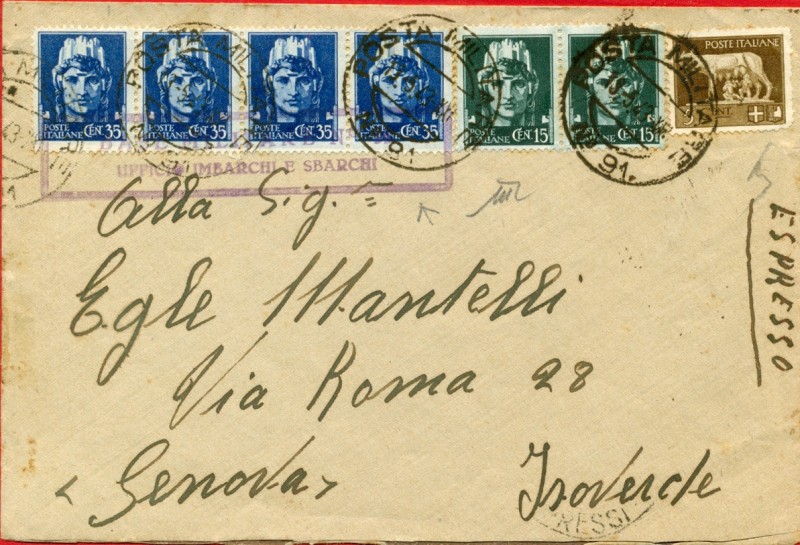 POSTE ITALIANE CENT 35
POSTE ITALIANE CENT 35
POSTE ITALIANE CENT 35
POSTE ITALIANE CENT 35
POSTE ITALIANE CENT 15
POSTE ITALIANE CENT 15
POSTE ITALIANE
POSTA MILITARE
91
POSTA MILITARE
91
POSTA MILITARE
UFFICIO IMBARCHI E SBARCHI
Alla Sig.
Egle Mantelli
Via Roma 28
Genova
Isoverde
ESPRESSO
RESSI